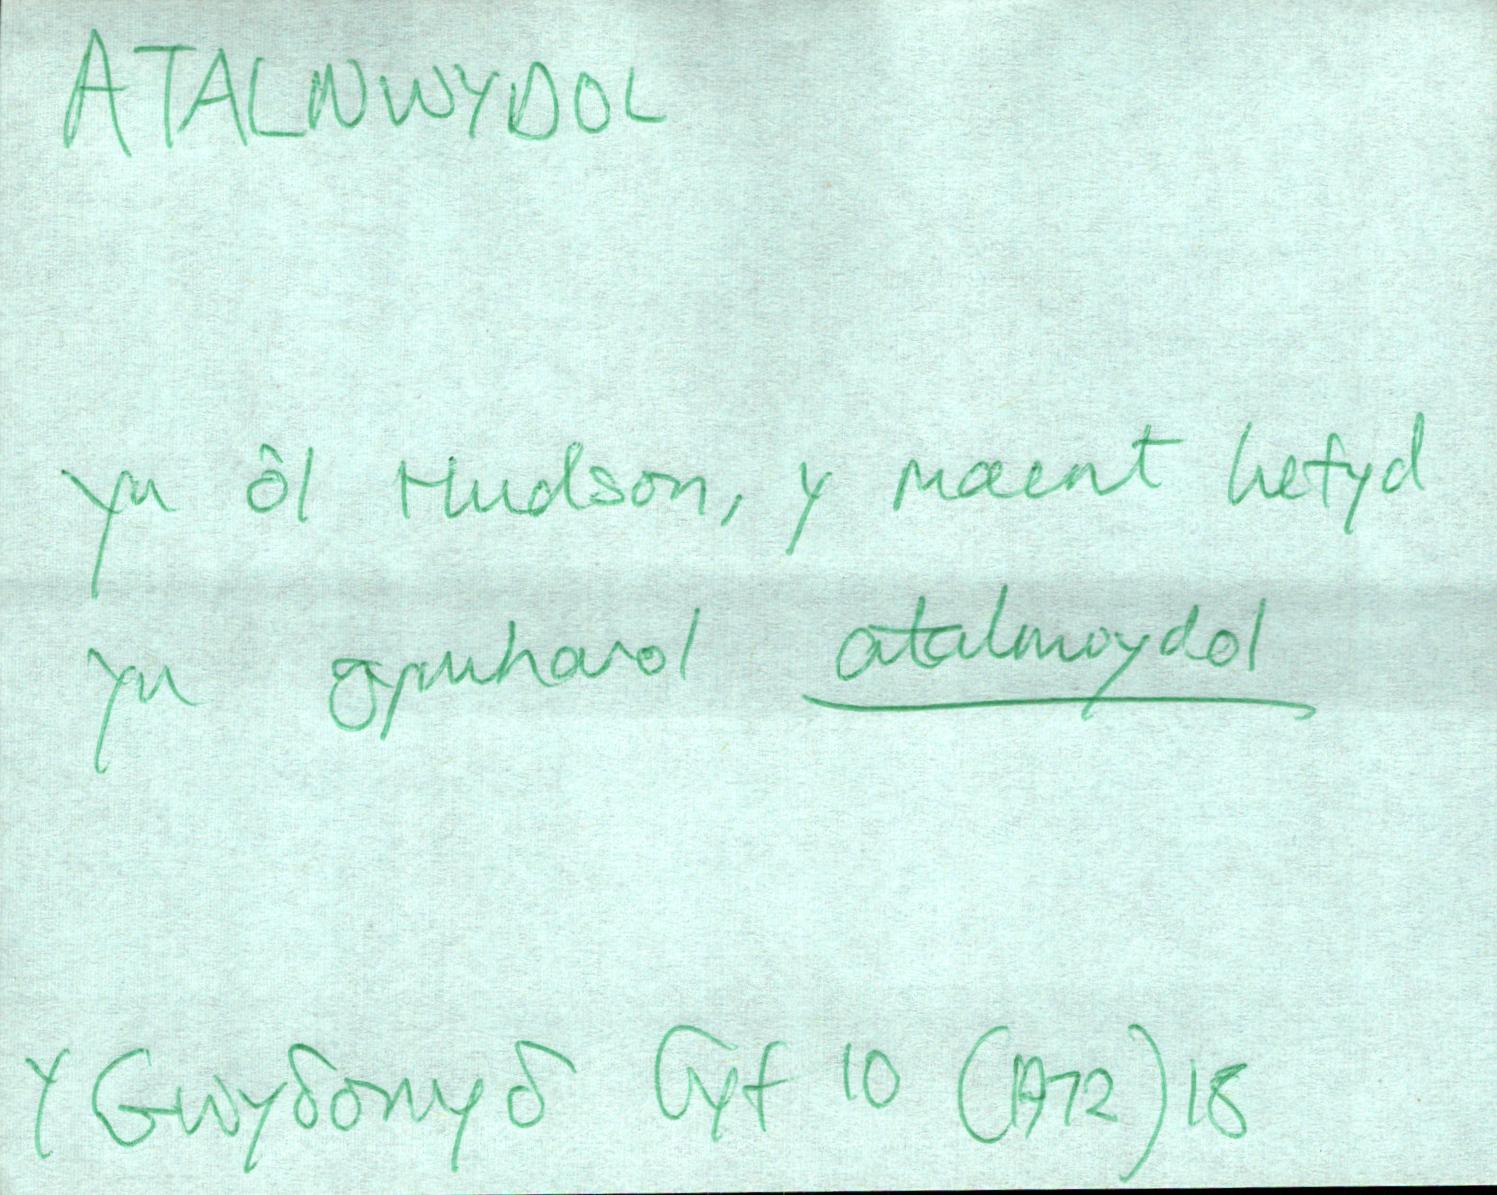 ATALNWYDOL
yn ôl Hudson, y maent hefyd
yn gynhavol atalnwydol
Y Gwyδonyδ Cyf 10 (1972) 18